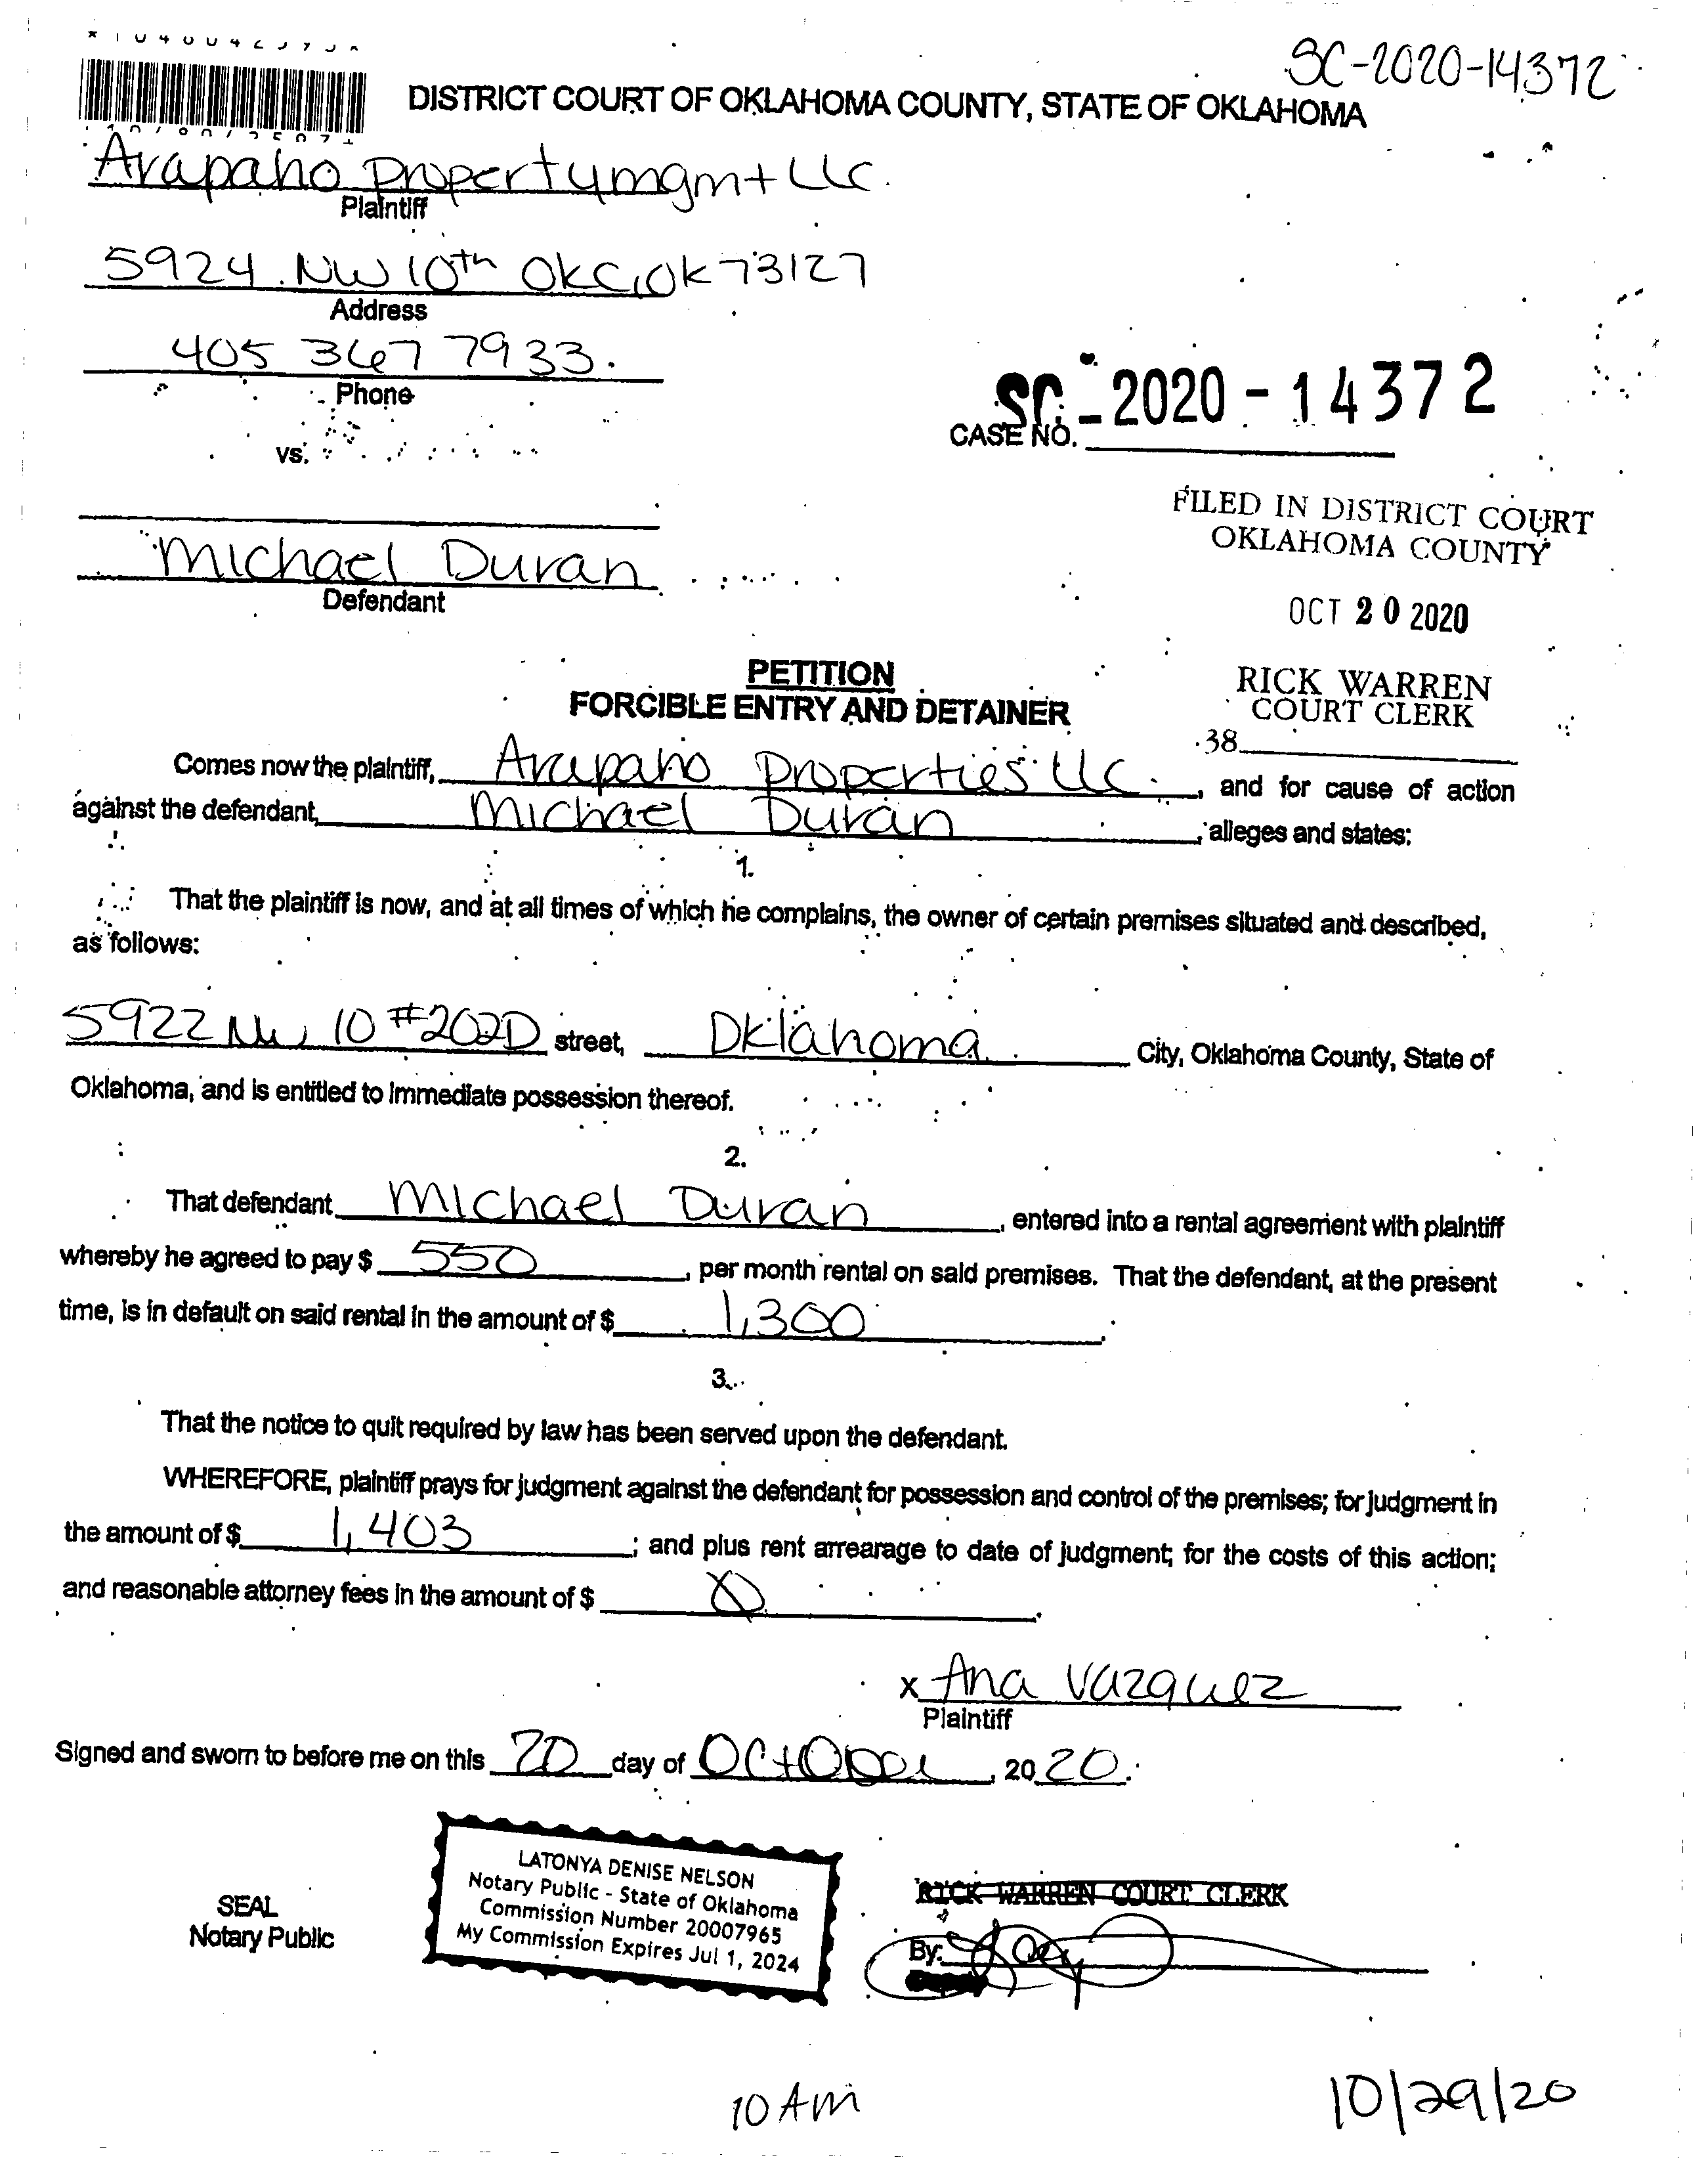 SC-2020-14372
DISTRICT COURT OF OKLAHOMA COUNTY, STATE OF OKLAHOMA
Arapaho Property mgmt LLC.
Plaintiff
5924 NW 10th OKC, OK 73127
Address
405 367 7933.
Phone
SC-2020-14372
CASE NO.
vs.
FILED IN DISTRICT COURT
OKLAHOMA COUNTY
Michael Duran
Defendant
OCT 20 2020
PETITION
FORCIBLE ENTRY AND DETAINER
RICK WARREN
COURT CLERK
38
Comes now the plaintiff, Arapaho Properties LLC. , and for cause of action
against the defendant, Michael Duran , alleges and states:
1.
That the plaintiff is now, and at all times of which he complains, the owner of certain premises situated and described,
as follows:
5922 NW 10 #202D street, Oklahoma City, Oklahoma County, State of
Oklahoma, and is entitled to immediate possession thereof.
2.
That defendant Michael Duran , entered into a rental agreement with plaintiff
whereby he agreed to pay $ 550 , per month rental on said premises. That the defendant, at the present
time, is in default on said rental in the amount of $ 1,300 .
3.
That the notice to quit required by law has been served upon the defendant.
WHEREFORE, plaintiff prays for judgment against the defendant for possession and control of the premises; for judgment in
the amount of $ 1,403 ; and plus rent arrearage to date of judgment; for the costs of this action;
and reasonable attorney fees in the amount of $ .
x Ana Vazquez
Plaintiff
Signed and sworn to before me on this 20 day of October , 20 20.
LATONYA DENISE NELSON
Notary Public - State of Oklahoma
Commission Number 20007965
My Commission Expires Jul 1, 2024
SEAL
Notary Public
RICK WARREN COURT CLERK
By:
10 AM
10/29/20